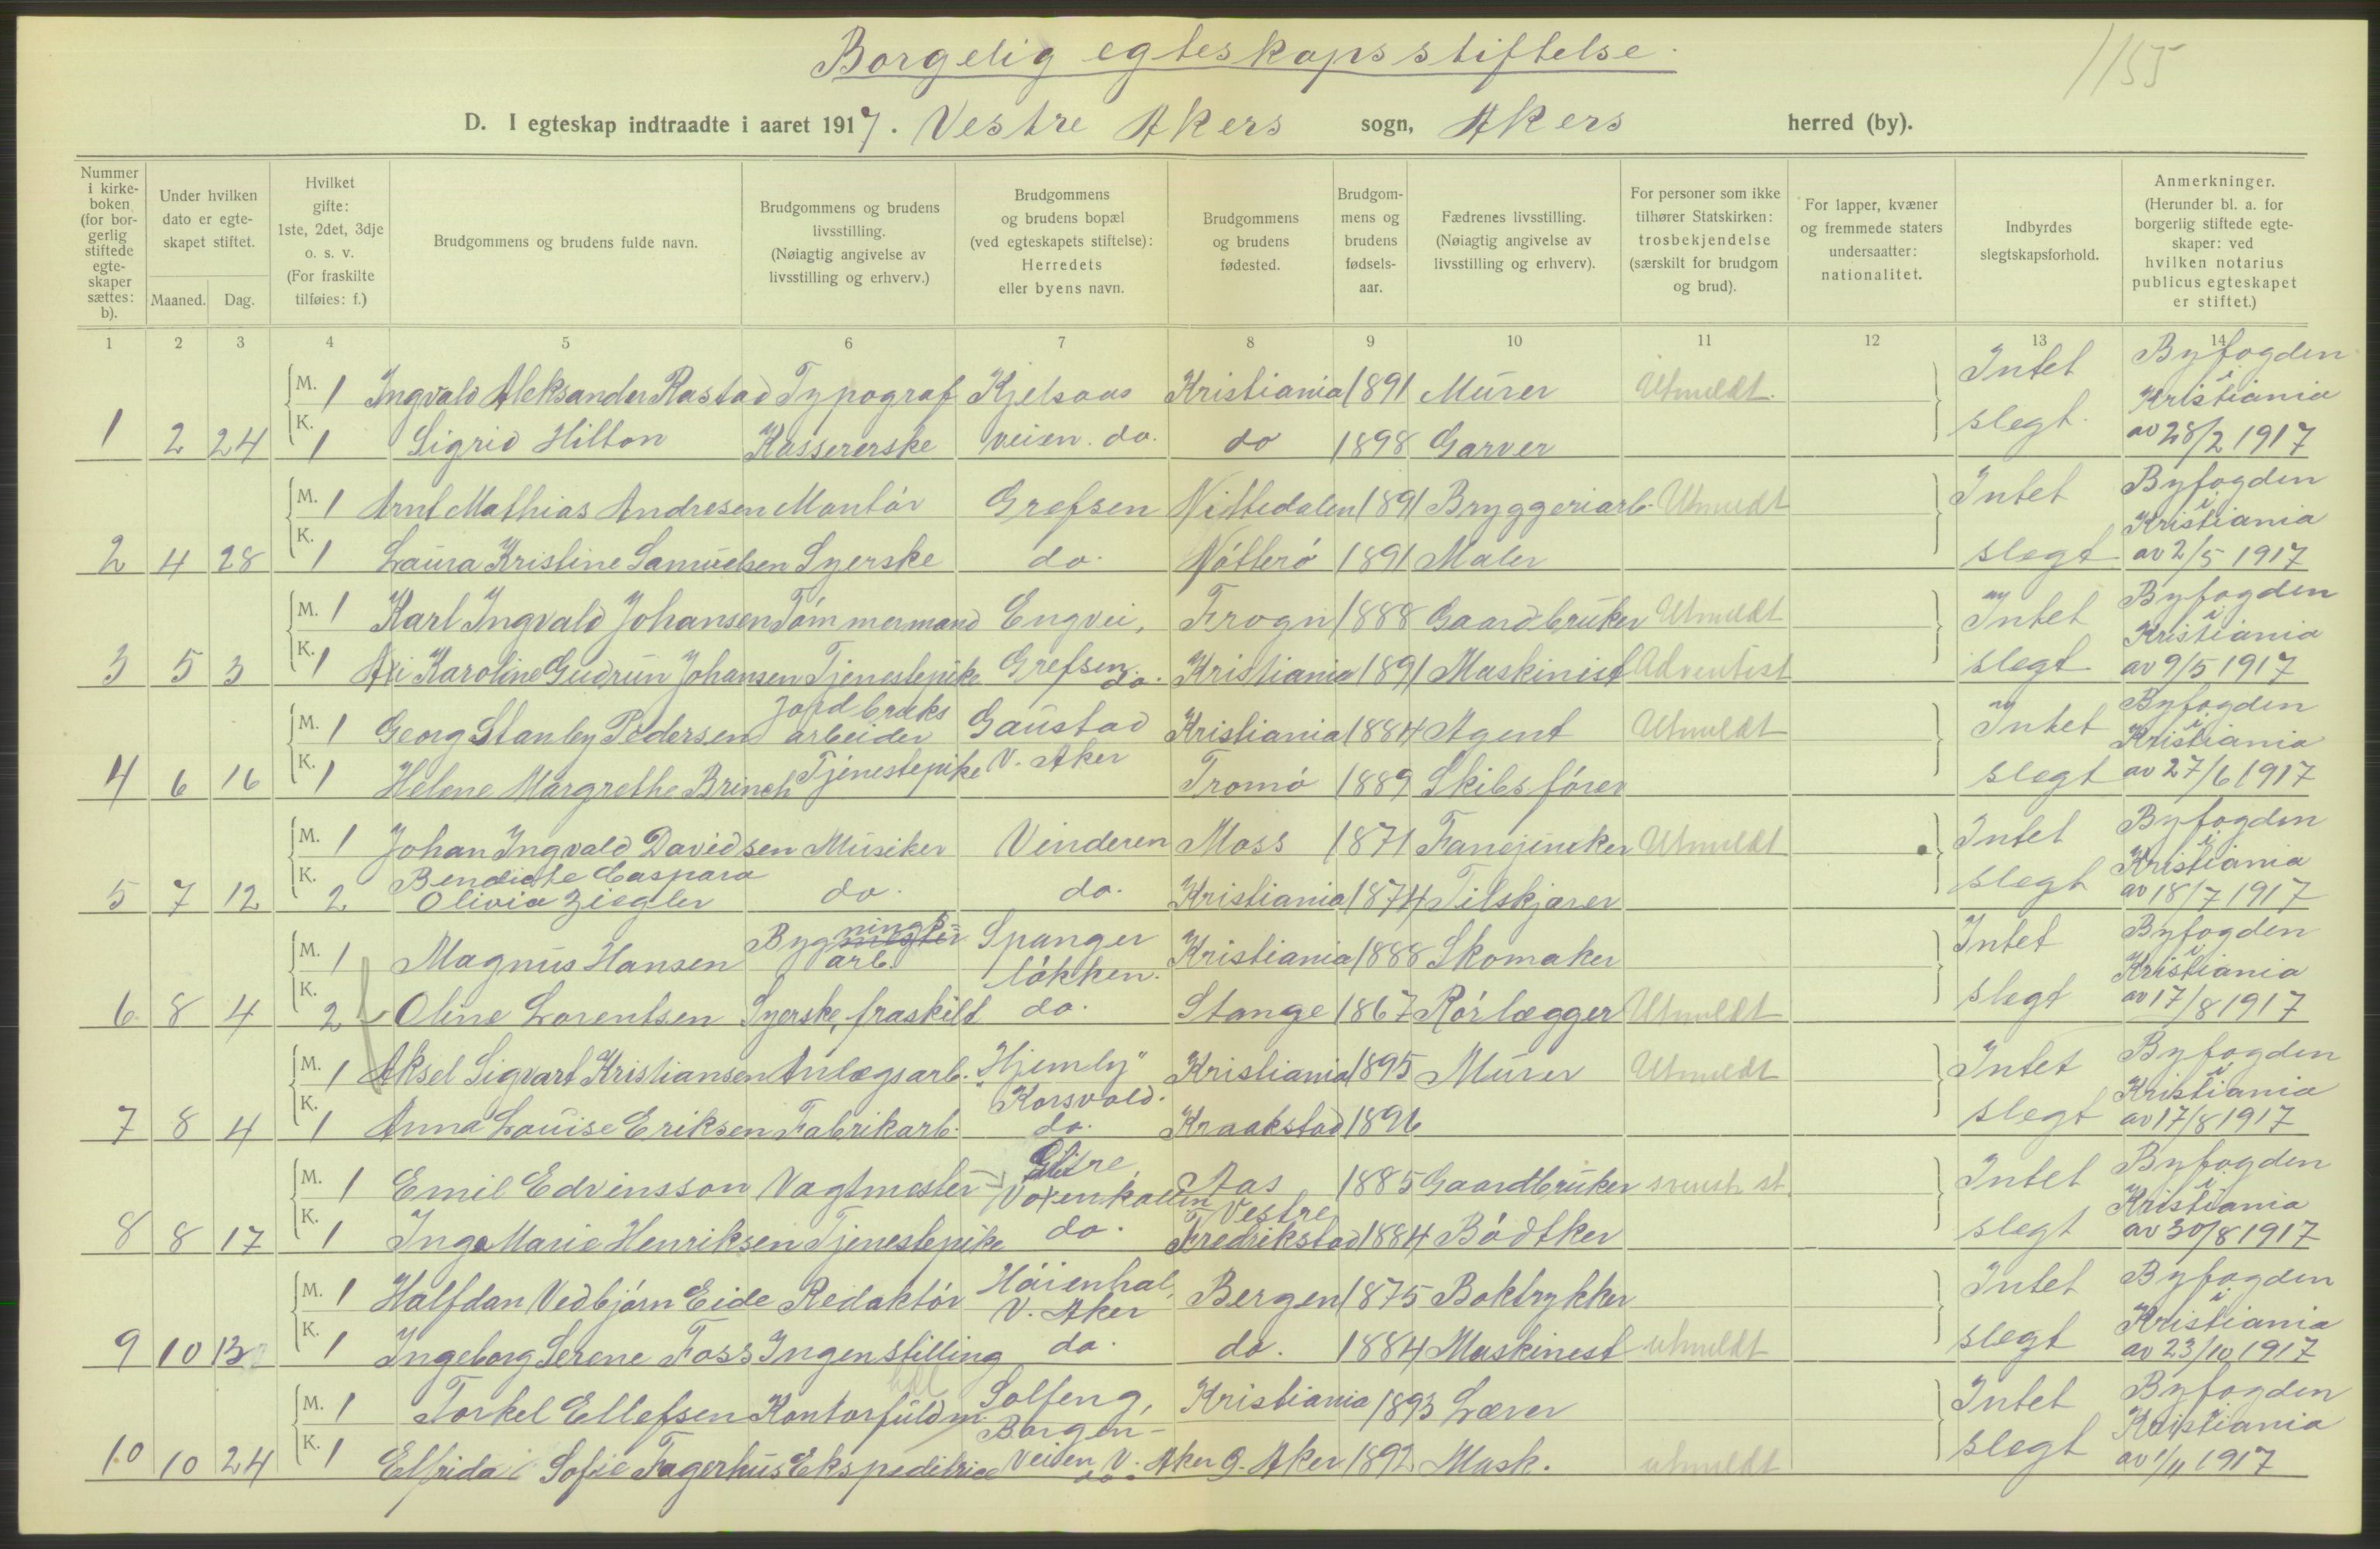 Borgelig egteskapsstiftelse.
1155
D. I egteskap indtraadte i aaret 1917. Vestre Akers sogn, Akers herred (by).
Nummer i kirkeboken (for borgerlig stiftede egteskaper sættes: b).
Under hvilken dato er egteskapet stiftet.
Maaned. Dag.
Hvilket gifte: 1ste, 2det, 3dje o. s. v. (For fraskilte tilføies: f.)
Brudgommens og brudens fulde navn.
Brudgommens og brudens livsstilling. (Nøiagtig angivelse av livsstilling og erhverv.)
Brudgommens og brudens bopæl (ved egteskapets stiftelse): Herredets eller byens navn.
Brudgommens og brudens fødested.
Brudgommens og brudens fødselsaar.
Fædrenes livsstilling. (Nøiagtig angivelse av livsstilling og erhverv).
For personer som ikke tilhører Statskirken: trosbekjendelse (særskilt for brudgom og brud).
For lapper, kvæner og fremmede staters undersaatter: nationalitet.
Indbyrdes slegtskapsforhold.
Anmerkninger. (Herunder bl. a. for borgerlig stiftede egteskaper: ved hvilken notarius publicus egteskapet er stiftet.)
1 2 3 4 5 6 7 8 9 10 11 12 13 14
M. 1 Ingvald Aleksander Rastad Typograf Kjelsaas Kristiania 1891 Murer Utmeldt. Intet Byfogden i Kristiania
1 2 24 K. 1 Sigrid Hilton Kassererske veien. do. do 1898 Garver slegt. av 28/2 1917
M. 1 Arnt Mathias Andresen Montør Grefsen Nittedalen 1891 Bryggeriarb. Utmeldt Intet Byfogden i Kristiania
2 4 28 K. 1 Laura Kristine Samuelsen Syerske do. Nøtterø 1891 Maler slegt av 2/5 1917
M. 1 Karl Ingvald Johansen Tømmermand Engvei, Frogn 1888 Gaardbruker Utmeldt Intet Byfogden i Kristiania
3 5 3 K. 1 Karoline Gudrun Johansen Tjenestepike Grefsen do. Kristiania 1891 Maskinist Adventist slegt av 9/5 1917
M. 1 Georg Stanley Pedersen Jordbruks arbeider Gaustad Kristiania 1884 Agent Utmeldt Intet Byfogden i Kristiania
4 6 16 K. 1 Helene Margrethe Brinch Tjenestepike V. Aker Tromø 1889 Skibsfører slegt av 27/6 1917
M. 1 Johan Ingvald Davidsen Musiker Vinderen Moss 1871 Fanejunker Utmeldt Intet Byfogden i Kristiania
5 7 12 K. 2 Bendicte Caspara Olivia Ziegler do. do. Kristiania 1874 Tilskjærer slegt av 18/7 1917
M. 1 Magnus Hansen Bygnings arb. Spanger løkken. Kristiania 1888 Skomaker Intet Byfogden i Kristiania
6 8 4 K. 2 Oline Lorentsen Syerske, fraskilt do. Stange 1867 Rørlægger Utmeldt slegt av 17/8 1917
M. 1 Aksel Sigvart Kristiansen Anlægsarb. "Hjemly" Korsvold. Kristiania 1895 Murer Utmeldt Intet Byfogden i Kristiania
7 8 4 K. 1 Anna Louise Eriksen Fabrikarb. do. Kraakstad 1896 slegt av 17/8 1917
M. 1 Emil Edvinsson Vagtmester Voxenkollen Aas 1885 Gaardbruker svensk st. Intet Byfogden i Kristiania
8 8 17 K. 1 Inga Marie Henriksen Tjenestepike do. Vestre Fredrikstad 1884 Bødtker slegt av 30/8 1917
M. 1 Halfdan Vedbjørn Eide Redaktør Høienhal, V. Aker Bergen 1875 Boktrykker Intet Byfogden i Kristiania
9 10 13 K. 1 Ingeborg Serene Foss Ingen stilling do. do. 1884 Maskinest utmeldt slegt av 23/10 1917
M. 1 Torkel Ellefsen Kontorfuldm. Solfeng, Borgen- Kristiania 1893 Lærer Intet Byfogden i Kristiania
10 10 24 K. 1 Elfrida Sofie Fagerhus Ekspeditrice veien V. Aker do. Ø. Aker 1892 Mask. utmeldt slegt av 1/11 1917